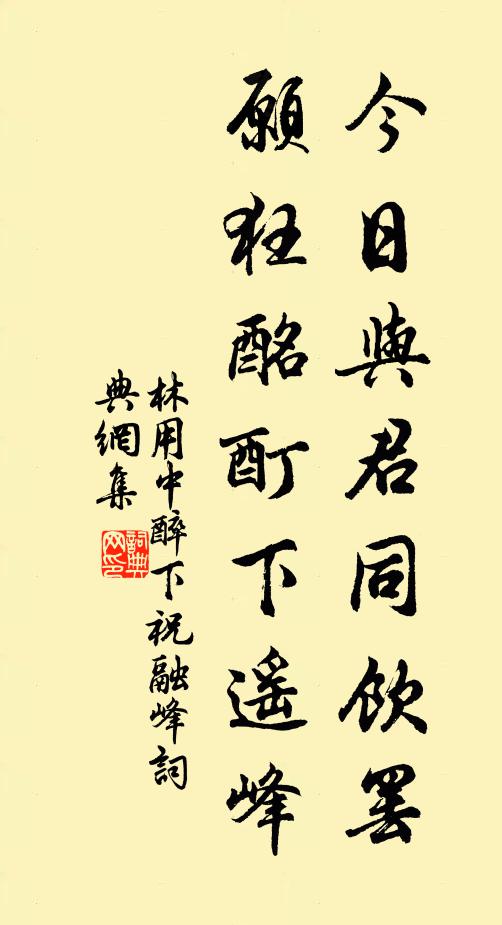 今日與君同飲罷
願狂酩酊下遥峰
林用中醉下祝融峰詞
典網集
詞典
网印